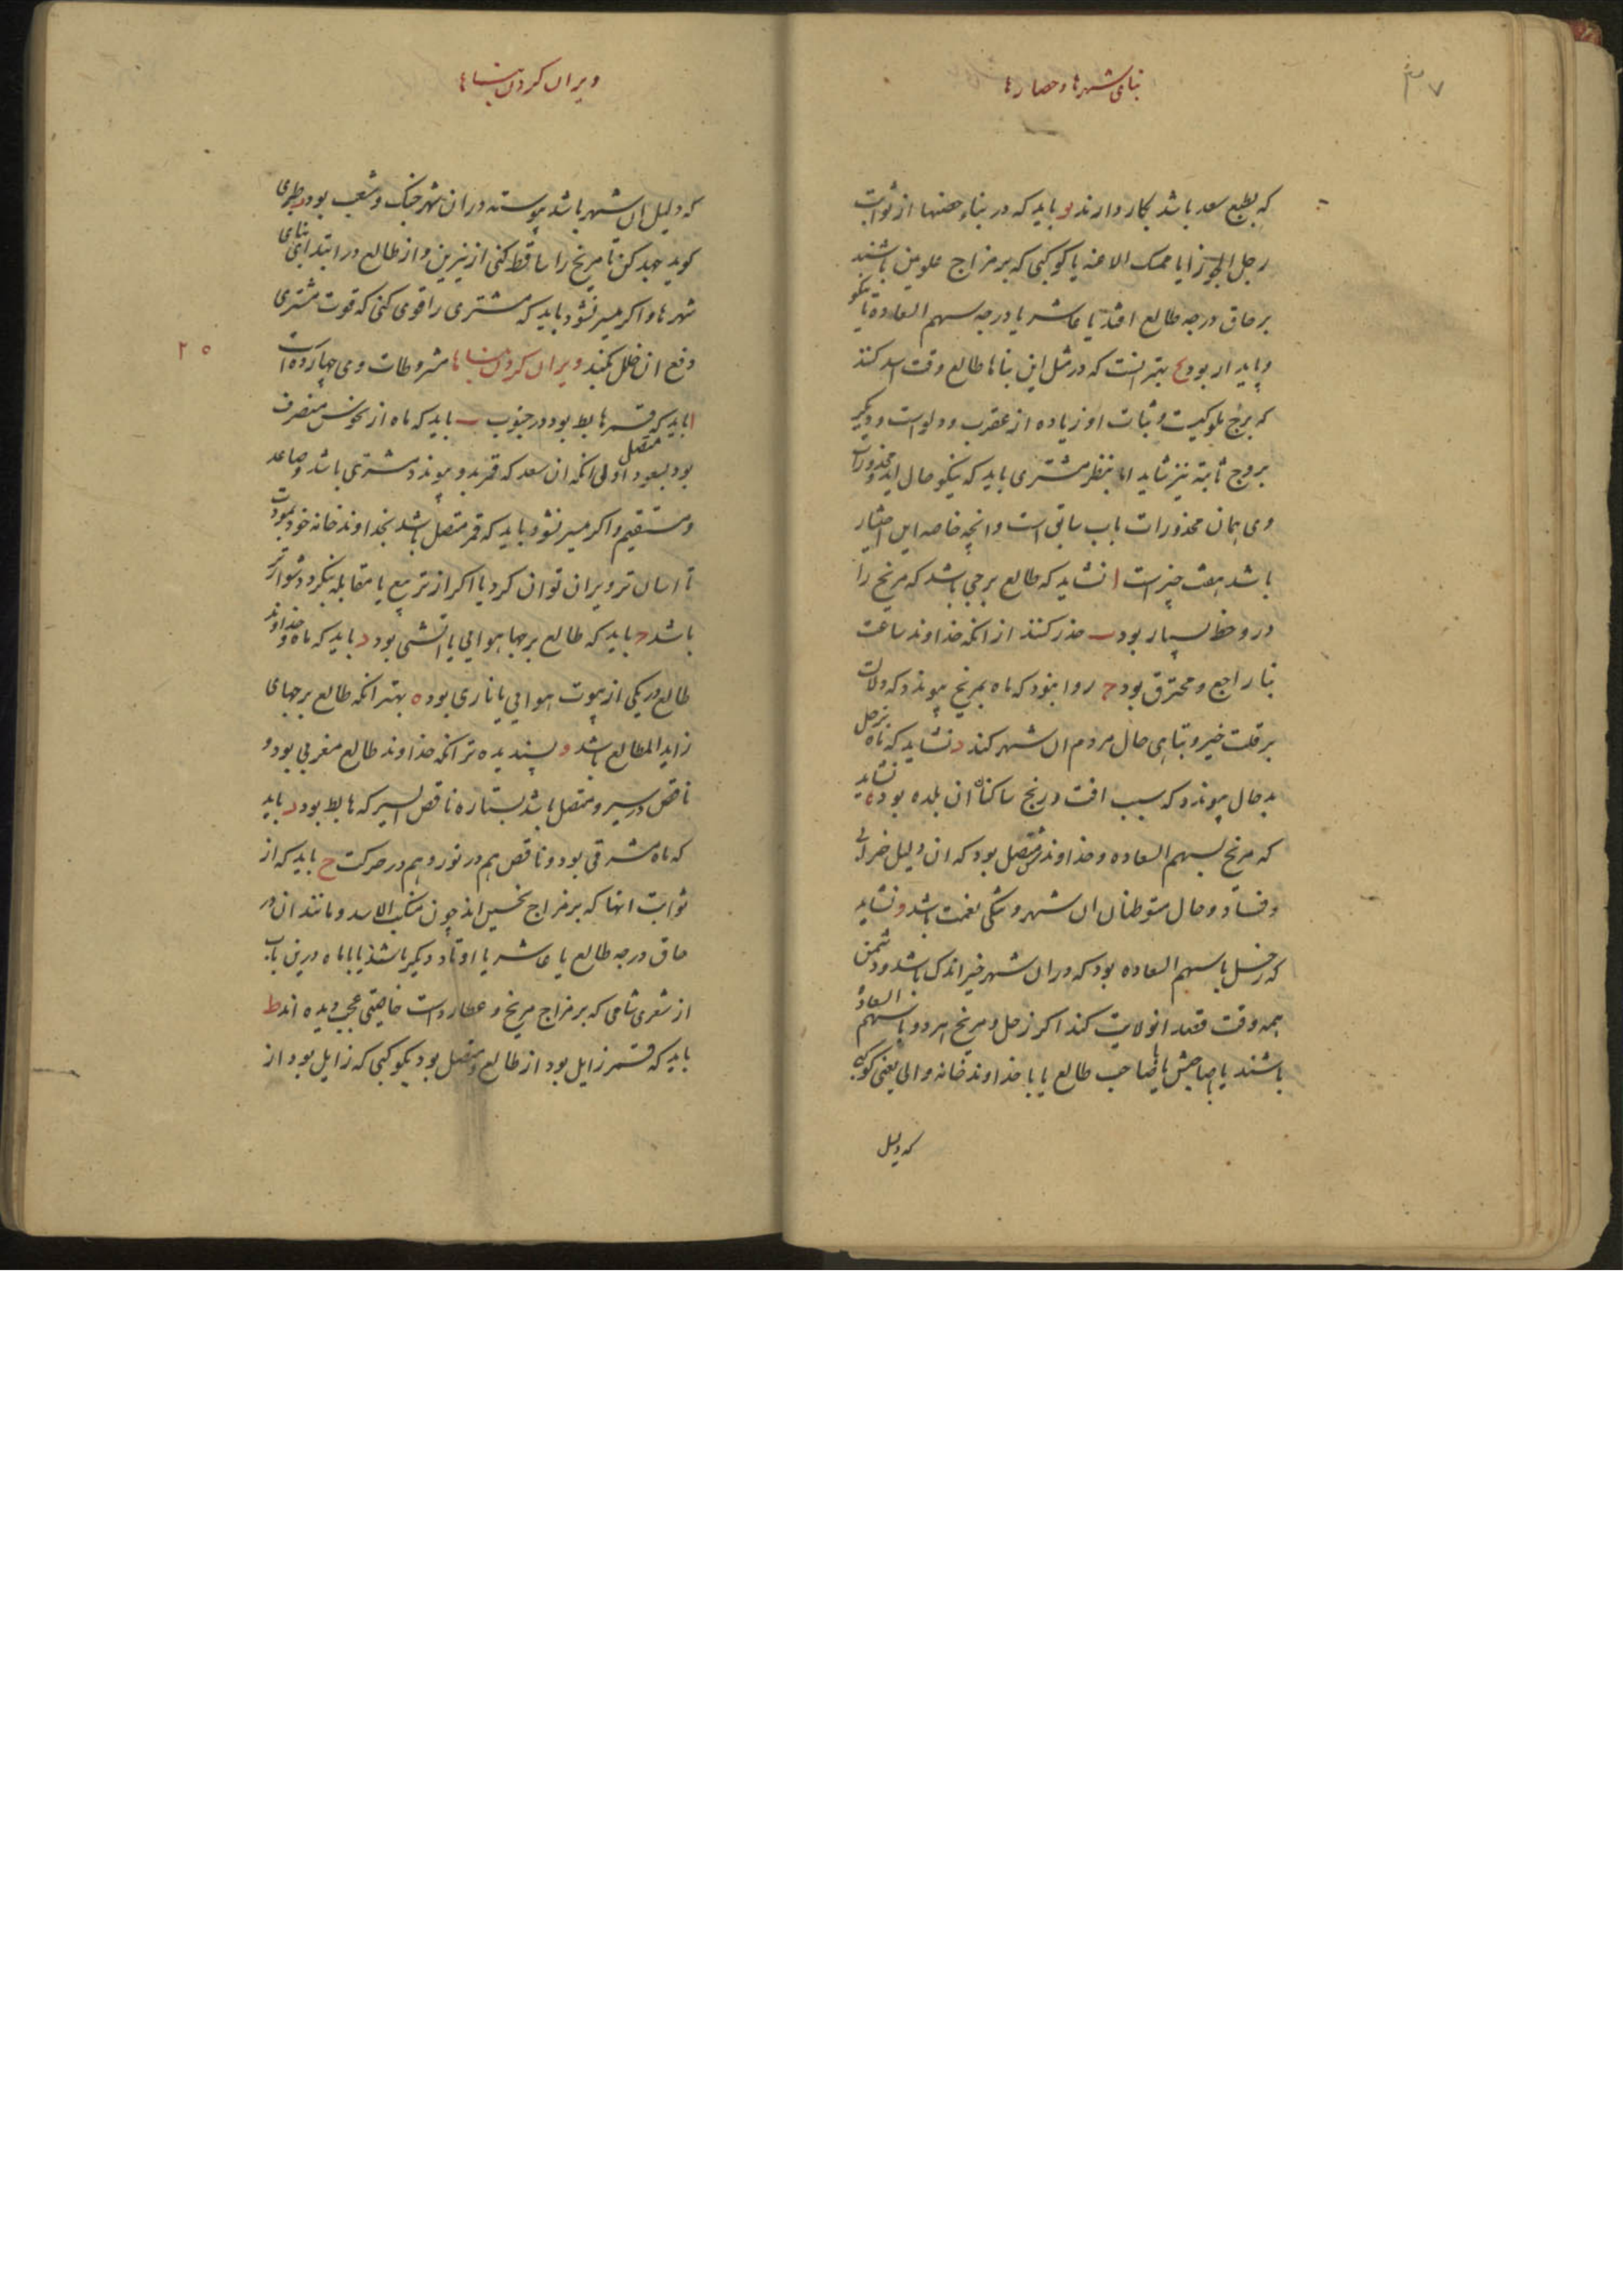 ۳۷
بنای شهرها و حصارها
که بطبع سعد باشد بکار دارند و باید که در بناء حصنها از ثوابت
رجل الجوزا یا ممسک الاعنه یا کوکبی که بر مزاج علویین باشند
بر حاق درجه طالع افتد یا عاشر یا درجه سهم السعاده تا نیکو
و پایدار بود بهتر انست که در مثل این بناها طالع وقت اسد کنند
که برج ملوکیست و ثبات او زیاده از عقرب و دلو است و دیگر
بروج ثابته نیز شاید اما بنظر مشتری باید که نیکو حال اید محذورات
وی همان محذورات باب سابق است و انچه خاصه این اختیار
باشد هفت چیز است ا نشاید که طالع برجی باشد که مریخ را
در و حظ بسیار بود ب حذر کنند از انکه خداوند ساعت
بنا راجع و محترق بود ج روا نبود که ماه بمریخ پیوندد که دلالت
بر قلت خیر و تباهی حال مردم ان شهر کند د نشاید که ماه بزحل
بد حال پیوندد که سبب افت و رنج ساکنان ان بلده بود ه نشاید
که مریخ بسهم السعاده و خداوندش متصل بود که ان دلیل خرابی
و فساد و حال متوطنان ان شهر و تنگی نعمت باشد و نشاید
که زحل با سهم السعاده بود که دران شهر خیر اندک باشد و دشمن
همه وقت قصد انولایت کند اکر زحل و مریخ هر دو با سهم السعاده
باشند یا با صاحبش یا با صاحب طالع یا با خداوند خانه والی یعنی کوکبی
که دلیل
ویران کردن بناها
که دلیل ان شهر باشد پیوسته دران شهر جنک و شغب بود طبری
کوید جهد کن تا مریخ را ساقط کنی از نیرین و از طالع در ابتدای بنای
شهرها و اکر میسر نشود باید که مشتری را قوی کنی که قوت مشتری
دفع ان خلل بکند ویران کردن بناها مشروطات وی چهارده است
۲۵
ا باید که قمر هابط بود در جنوب ب باید که ماه از نحوس منصرف
بود بسعود متصل اولی انکه ان سعد که قمر بدو پیوندد مشتری باشد و صاعد
و مستقیم و اکر میسر نشود باید که قمر متصل باشد بخداوند خانه خود بمودت
تا اسان تر ویران توان کرد یا اکر از تربیع یا مقابله بنکرد دشوارتر
باشد ج باید که طالع برجها هوایی یا اتشی بود د باید که ماه و خداوند
طالع در یکی از بیوت هوایی یا ناری بود ه بهتر انکه طالع برجهای
زاید المطالع باشد و پسندیده تر انکه خداوند طالع مغربی بود و
ناقص در سیر و متصل باشد بستاره ناقص السیر که هابط بود ز باید
که ماه مشرقی بود و ناقص هم در نور و هم در حرکت ح باید که از
ثوابت انها که بر مزاج نحسین اند چون منکب الاسد و مانند ان در
حاق درجه طالع یا عاشر یا اوتاد دیکر باشند یا با ماه و درین باب
از شعری شامی که بر مزاج مریخ و عطارد است خاصیتی عجب دیده اند ط
باید که قمر زایل بود از طالع و متصل بود بکوکبی که زایل بود از